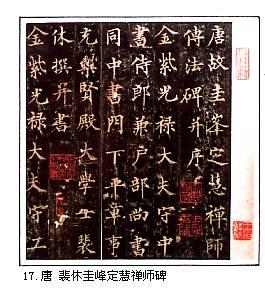 唐故圭峯定慧禪師
傳法碑并序
金紫光禄大夫守中
書侍郎兼户部尚書
同中書門下平章事
充集賢殿大學士裴
休撰并書
金紫光禄大夫守工
17.唐 裴休圭峰定慧禅师碑